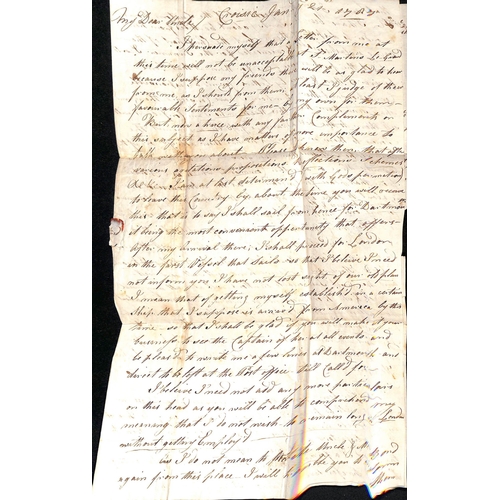 My Dear Uncle, Jan
I persuade myself that a letter from me at
this time will not be unacceptable at St Martins Le Grand
because I suppose my friends there will be as glad to hear
from me as I should from them, at least I judge of their
favorable Sentiments for me by my own for them
But now a truce with any farther Compliments on
this subject as I have matters of more importance to
about. Please know then that after
various cogitations propositions reflections Schemes
&c &c I am at last determined with Gods permission
to leave this Country by about the time you will receive
this that is to say I shall sail from hence for Dartmouth
it being the most convenient opportunity that offers
After my arrival there, I shall proceed for London
in the first Vessel that sails so that I believe I need
not inform you I have not lost sight of our old plan
I mean that of getting myself established in a certain
Ship that I suppose is arrived from America by this
time so that I shall be glad if you will make it your
business to see the Captain of her at all events and
be pleased to write me a few lines at Dartmouth and
direct to be left at the Post office till Call'd for
I believe I need not add any more particulars
on this head as you will be able to comprehend my
meaning that I do not wish to remain long London
without getting Employ'd
As I do not mean to trouble Uncle
again from this place I will you